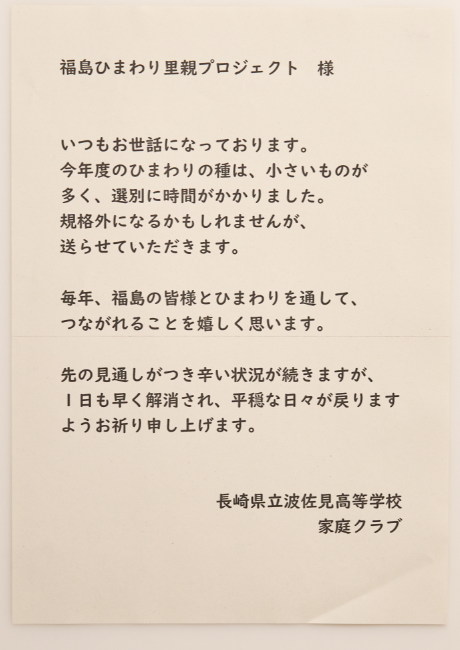 福島ひまわり里親プロジェクト　様
いつもお世話になっております。
今年度のひまわりの種は、小さいものが
多く、選別に時間がかかりました。
規格外になるかもしれませんが、
送らせていただきます。
毎年、福島の皆様とひまわりを通して、
つながれることを嬉しく思います。
先の見通しがつき辛い状況が続きますが、
1日も早く解消され、平穏な日々が戻ります
ようお祈り申し上げます。
長崎県立波佐見高等学校
家庭クラブ